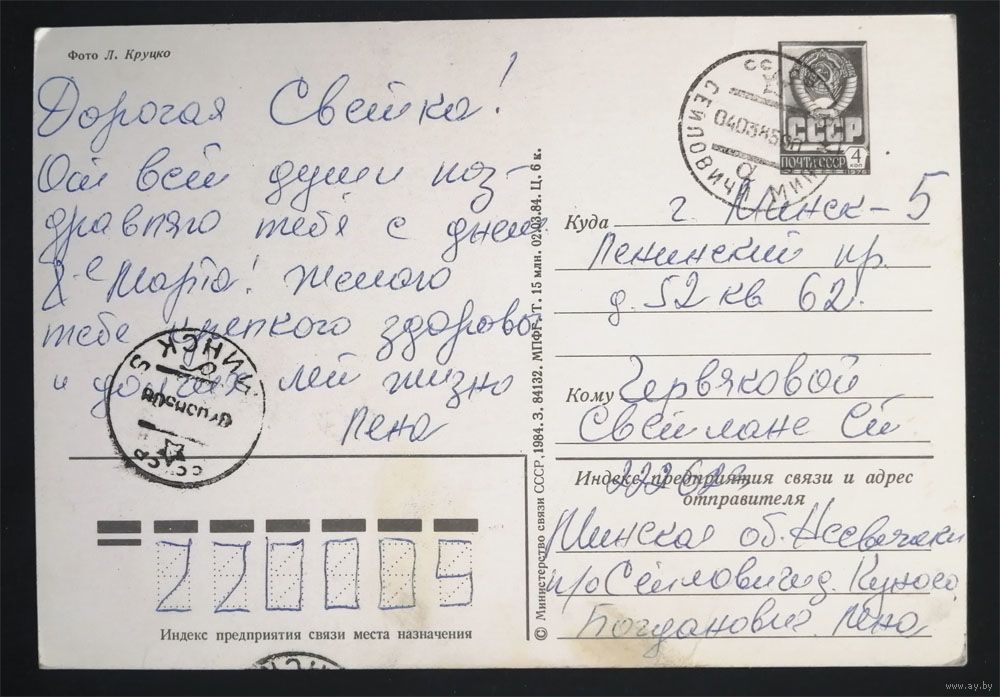 Фото Л. Круцко
Дорогая Светка!
От всей души поз-
дравляю тебя с днем
8е Марта! Желаю
тебе крепкого здоровь
и долгих лет жизни
Лена
СССР
СЕЙЛОВИЧИ МИН
СССР
ПОЧТА СССР
4
КОП
1976
Куда г. Минск-5
Ленинский пр.
д. 52 кв 62.
Кому Червяковой
Светлане
МИНСК 5
СССР
Индекс предприятия связи и адрес
отправителя
Минская об. Несвижский
п/о Сейловичи д.
Богданович Лена
220005
Индекс предприятия связи места назначения
© Министерство связи СССР, 1984. З. 84132. МПФГ. Т. 15 млн. 02.03.84. Ц. 6 к.
www.ay.by